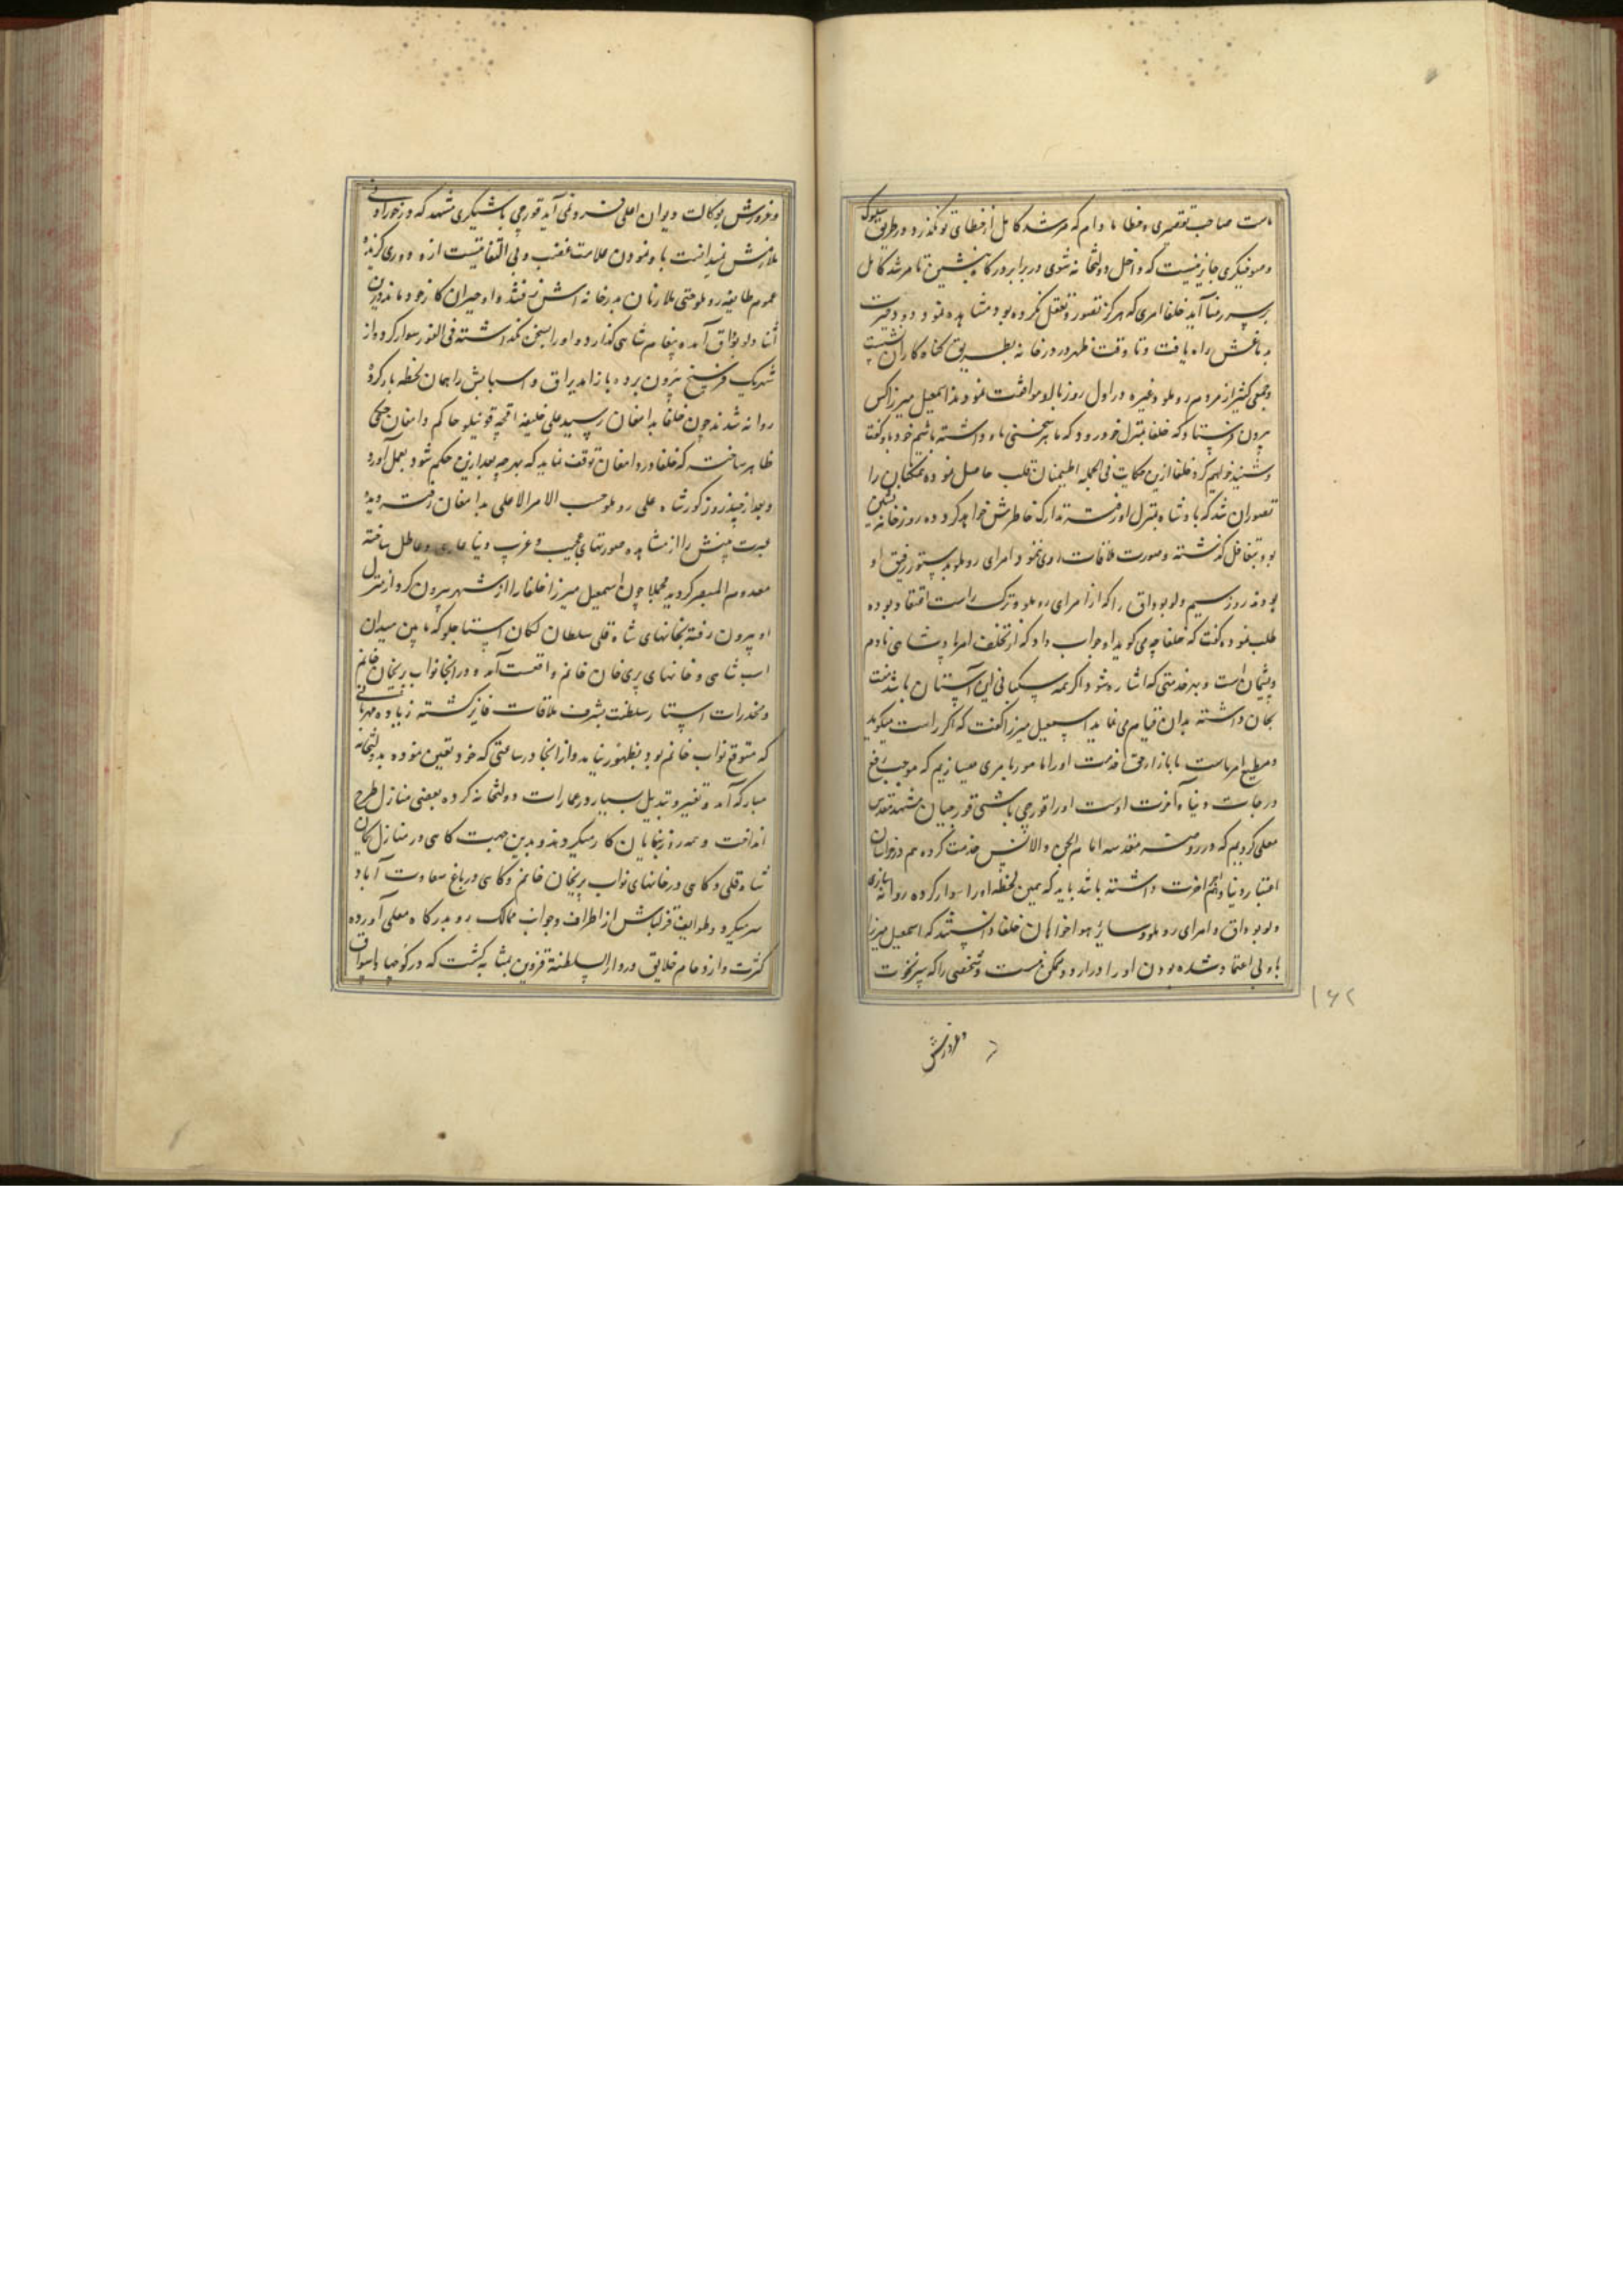 ماست صاحب تقصیری و خطا مادام که مرشد کامل از خطای تو نگذرد و در طریق سلوک
و صوفیگری جایز نیست که داخل دولتخانه شوی در برابر درگاه بنشین تا مرشد کامل
برسر رضا آید خلفا امری که هرگز تصور و تعقل نکرده بود مشاهده نمود و دود حیرت
بدماغش راه یافت و تا وقت ظهر در درخانه بطریق گناه کاران نشست
و جمعی کثیر از مردم روملو و غیره در اول روز با او موافقت نمودند اسمعیل میرزا کس
بیرون فرستاد که خلفا بمنزل خود رود که ما هر سخنی با او داشته باشیم خود باو گفت
و شنید خواهیم کرد خلفا ازین حکایت فی الجمله اطمینان قلب حاصل نموده همگنان را
تصور آن شد که پادشاه بمنزل او رفته تدارک خاطرش خواهد کرد ده روز خانه نشین
بود بتغافل گذشته و صورت ملاقات روی ننمود و امرای روملو بدستور رفیق او
بودند روز سیم ولو بوداق را که از امرای روملو و ترک راست اعتقاد بوده
طلب نموده گفت که خلفا چه می گوید او جواب داد که از تخلف امر پادشاهی نادم
و پشیمان است و بهر خدمتی که اشاره شود اگر همه سگبانی این آستان باشد منت
بجان داشته بدان قیام می نماید اسمعیل میرزا گفت که اگر راست میگوید
و مطیع امر ماست ما بازار حق خدمت اورا مامور بامری میسازیم که موجب رفع
درجات دنیا و آخرت اوست اورا قورچی باشی قورچیان مشهد مقدس
معلی کردیم که در روضه مقدسه امام الجن والانس خدمت کرده هم در خراسان
اعتبار دنیا و هم اجر آخرت داشته باشد باید که همین لحظه اورا سوار کرده روانه سازی
ولو بوداق و امرای روملو و سایر هواخواهان خلفا دانستند که اسمعیل میرزا
باو بی اعتماد شده بودن او را در اردو ممکن نیست و شخصی را که سر نخوت
۱۶۲
و غرورش
و غرورش بوکالت دیوان اعلی فرو نمی آید قورچی باشیگری مشهد که در خور ادنی
ملازمش نمیدانست باو نمودن علامت غضب و بی التفاتیست ازو دوری گزیده
عموم طایفه روملو حتی ملازمان بدرخانه اش نرفتند و او حیران کار خود ماند درین
اثنا ولو بوداق آمده پیغام شاهی گذارد و اورا بسخن نگذاشته فی الفور سوار کرد و از
شهر یک فرسخ بیرون برده باز آمد یراق و اسبابش را همان لحظه بار کرده
روانه شدند چون خلفا بدامغان رسید علی خلیفه اقچه قوینلو حاکم دامغان حکمی
ظاهر ساخت که خلفا در دامغان توقف نماید که بهرچه بعد ازین حکم شود بعمل آورد
و بعد از چند روز کور شاه علی روملو حسب الامر الاعلی بدامغان رفته دیده
عبرت بینش را از مشاهده صورتهای عجیب و غریب دنیا عاری و عاطل ساخته
معدوم البصر گردید مجملا چون اسمعیل میرزا خلفا را از شهر بیرون کرد از منزل
او بیرون رفته بخانهای شاه قلی سلطان یکان استاجلو که مابین میدان
اسب شاهی و خانهای پری خان خانم واقعست آمد و در آنجا نواب پریخان خانم
و مخدرات استار سلطنت بشرف ملاقات فایز گشته زیاده مهربانی
که متوقع نواب خانم بود بظهور نیامد و از آنجا در ساعتی که خود تعیین نموده بدولتخانه
مبارکه آمد و تغییر و تبدیل بسیار در عمارات دولتخانه کرده بعضی منازل طرح
انداخت و همه روزه بنایان کار میکردند و بدین جهت گاهی در منازل یکان
شاه قلی و گاهی در خانهای نواب پریخان خانم و گاهی در باغ سعادت آباد
سر میکرد و طوایف قزلباش از اطراف و جوانب ممالک رو بدرگاه معلی آورده
کثرت و ازدحام خلایق در دارالسلطنه قزوین بمثابه گشت که در کوچها و اسواق